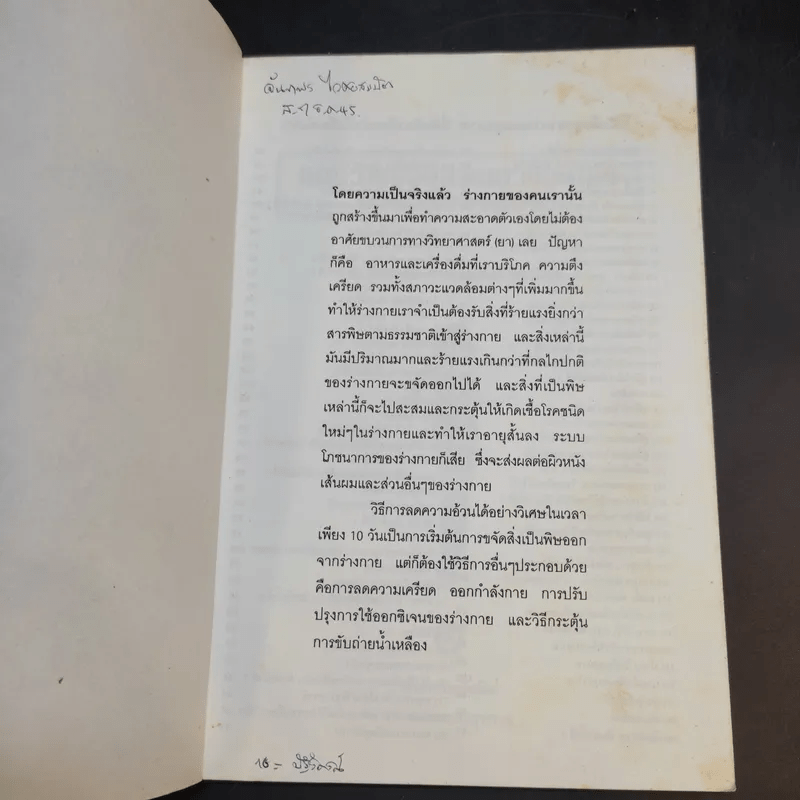 โดยความเป็นจริงแล้ว ร่างกายของคนเรานั้น
ถูกสร้างขึ้นมาเพื่อทำความสะอาดตัวเองโดยไม่ต้อง
อาศัยขบวนการทางวิทยาศาสตร์ (ยา) เลย ปัญหา
ก็คือ อาหารและเครื่องดื่มที่เราบริโภค ความตึง
เครียด รวมทั้งสภาวะแวดล้อมต่างๆที่เพิ่มมากขึ้น
ทำให้ร่างกายเราจำเป็นต้องรับสิ่งที่ร้ายแรงยิ่งกว่า
สารพิษตามธรรมชาติเข้าสู่ร่างกาย และสิ่งเหล่านี้
มันมีปริมาณมากและร้ายแรงเกินกว่าที่กลไกปกติ
ของร่างกายจะขจัดออกไปได้ และสิ่งที่เป็นพิษ
เหล่านี้ก็จะไปสะสมและกระตุ้นให้เกิดเชื้อโรคชนิด
ใหม่ๆในร่างกายและทำให้เราอายุสั้นลง ระบบ
โภชนาการของร่างกายก็เสีย ซึ่งจะส่งผลต่อผิวหนัง
เส้นผมและส่วนอื่นๆของร่างกาย
วิธีการลดความอ้วนได้อย่างวิเศษในเวลา
เพียง 10 วันเป็นการเริ่มต้นการขจัดสิ่งเป็นพิษออก
จากร่างกาย แต่ก็ต้องใช้วิธีการอื่นๆประกอบด้วย
คือการลดความเครียด ออกกำลังกาย การปรับ
ปรุงการใช้ออกซิเจนของร่างกาย และวิธีกระตุ้น
การขับถ่ายน้ำเหลือง